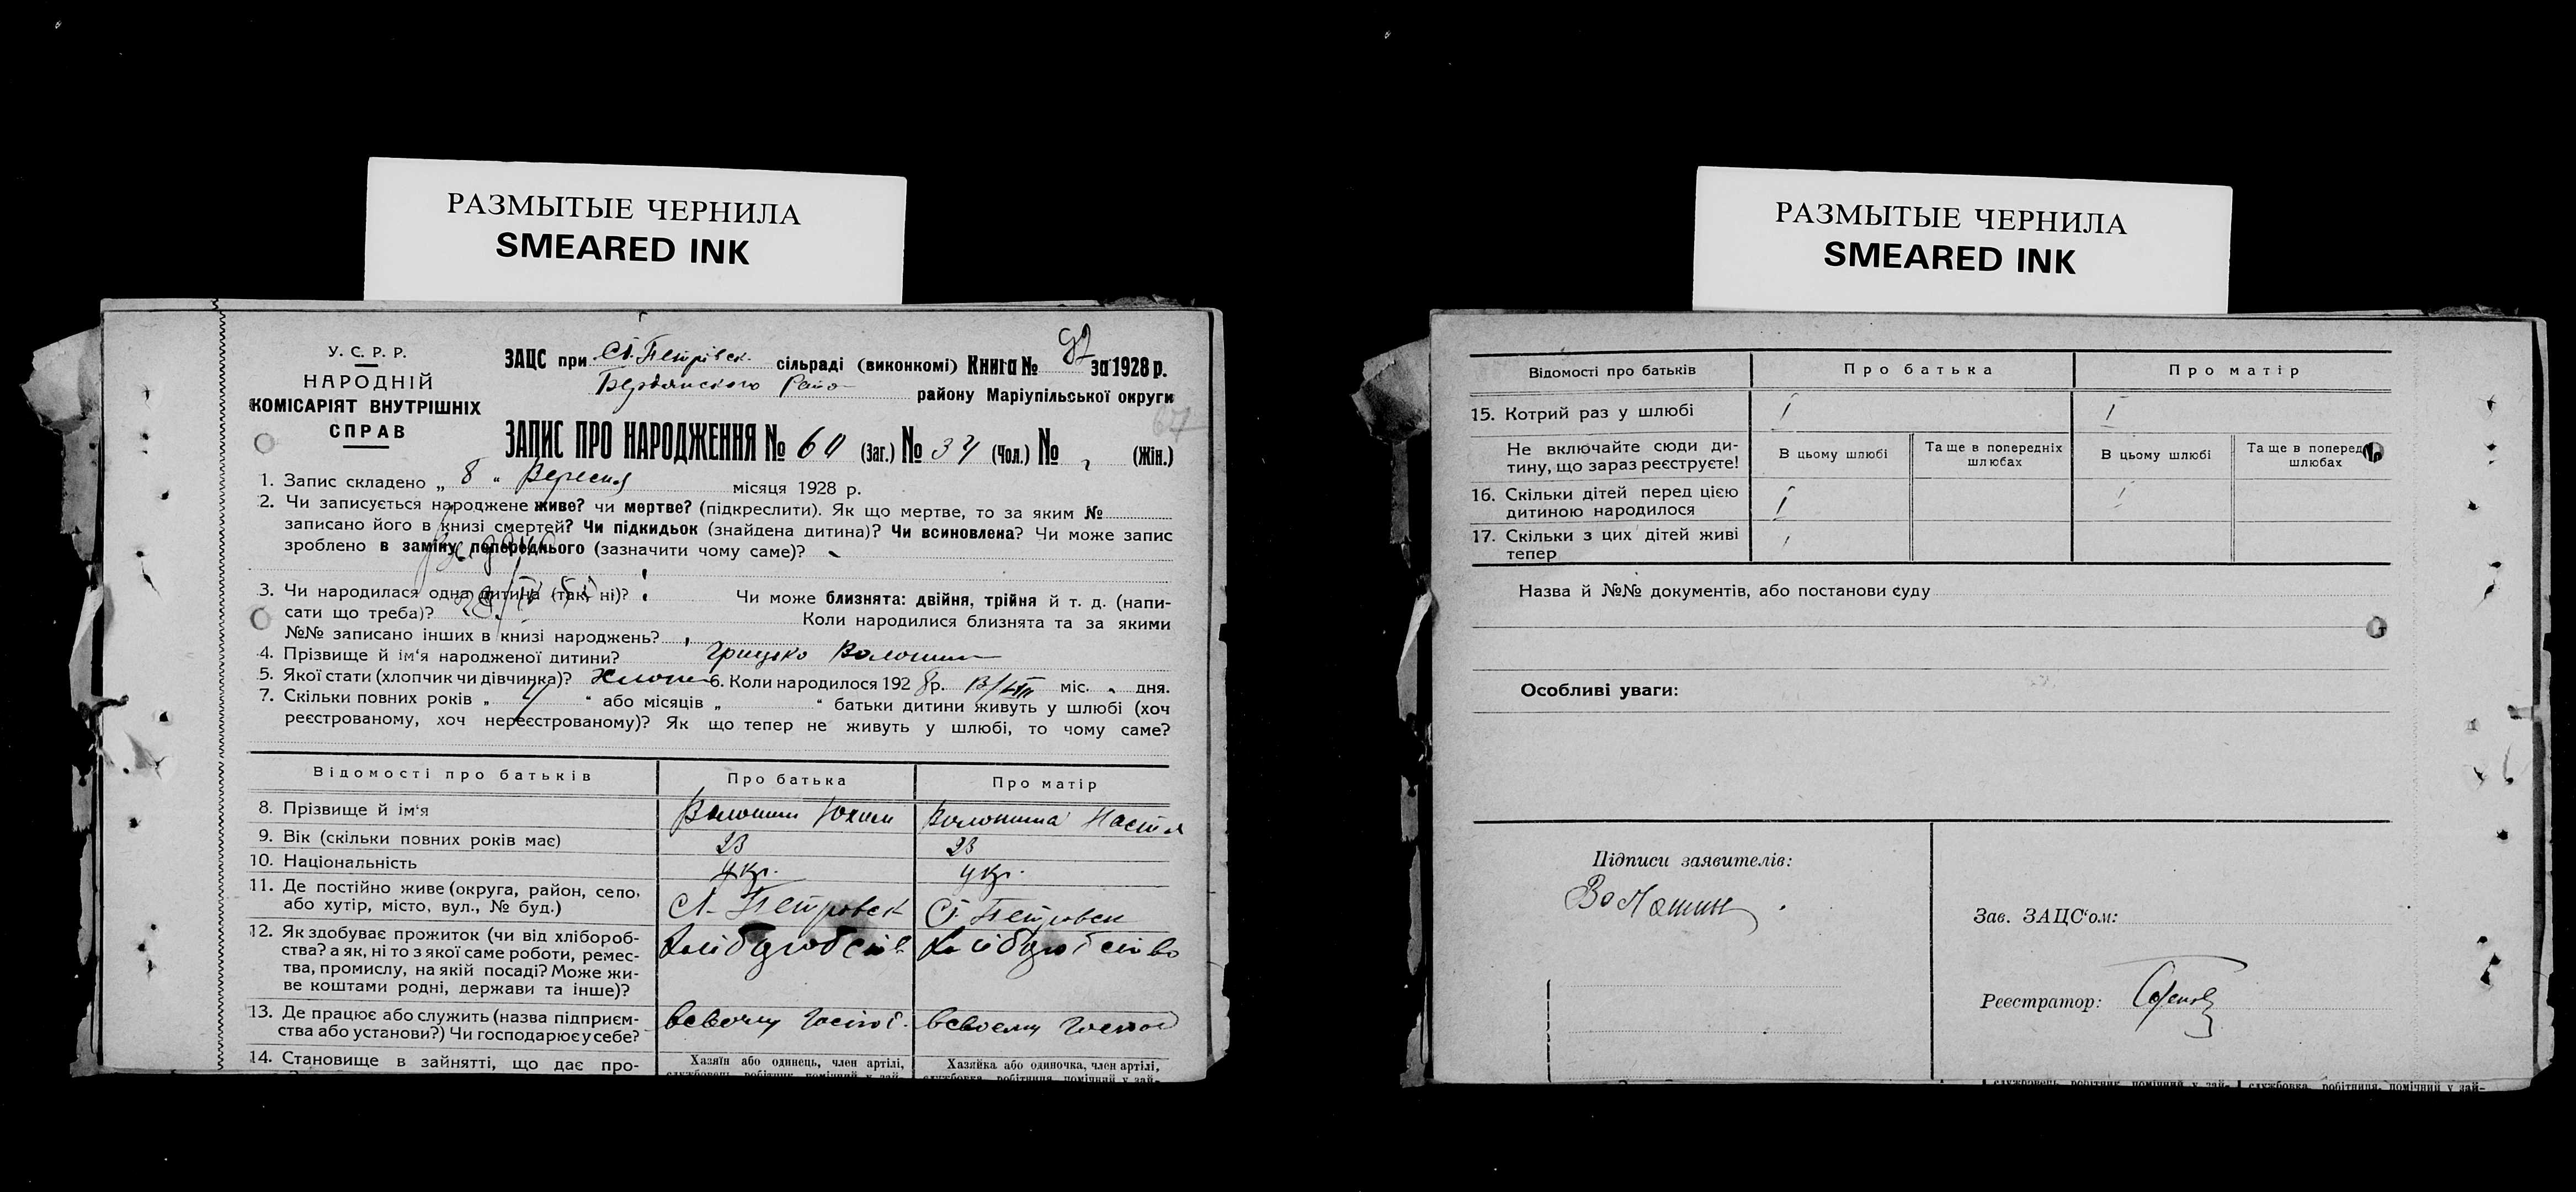 РАЗМЫТЫЕ ЧЕРНИЛА
SMEARED INK
У. С. Р. Р.
НАРОДНІЙ
КОМІСАРІЯТ ВНУТРІШНІХ
СПРАВ
ЗАЦС при Ст. Петрівск сільраді (виконкомі) Книга № за 1928 р.
Бердянского району Маріупільської округи
ЗАПИС ПРО НАРОДЖЕННЯ № 60 (Заг.) № 34 (Чол.) № (Жін.)
1. Запис складено „ 8 “ Вересня місяця 1928 р.
2. Чи записується народжене живе? чи мертве? (підкреслити). Як що мертве, то за яким №
записано його в книзі смертей? Чи підкидьок (знайдена дитина)? Чи всиновлена? Чи може запис
зроблено в заміну попереднього (зазначити чому саме)?
3. Чи народилася одна дитина (так, ні)? Чи може близнята: двійня, трійня й т. д. (напи-
сати що треба)? Коли народилися близнята та за якими
№№ записано інших в книзі народжень?
4. Прізвище й ім‘я народженої дитини? Грицько Волошин
5. Якої стати (хлопчик чи дівчинка)? Хлопч 6. Коли народилося 1928 р. 13/VIII міс. „ дня.
7. Скільки повних років „ 4 “ або місяців „ “ батьки дитини живуть у шлюбі (хоч
реєстрованому, хоч нереєстрованому)? Як що тепер не живуть у шлюбі, то чому саме?
Відомості про батьків Про батька Про матір
8. Прізвище й ім‘я Волошин Юхим Волошина Настя
9. Вік (скільки повних років має) 23 23
10. Національність Укр. Укр.
11. Де постійно живе (округа, район, село, або хутір, місто, вул., № буд.) Ст. Петровск Ст. Петровск
12. Як здобуває прожиток (чи від хлібороб-
ства? а як, ні то з якої саме роботи, ремес-
тва, промислу, на якій посаді? Може жи-
ве коштами родні, держави та інше)?
13. Де працює або служить (назва підприєм-
ства або установи?) Чи господарює у себе? в свому госпо в своему госпо
14. Становище в зайнятті, що дає про- Хазяїн або одинець, член артілі, Хазяйка або одиночка, член артілі,
службовець, робітник, помічний у зай- службовка, робітниця, помічний у зай-
РАЗМЫТЫЕ ЧЕРНИЛА
SMEARED INK
Відомості про батьків Про батька Про матір
15. Котрий раз у шлюбі I I
Не включайте сюди ди-
тину, що зараз реєструєте! В цьому шлюбі Та ще в попередніх шлюбах В цьому шлюбі Та ще в поперед шлюбах
16. Скільки дітей перед цією
дитиною народилося I I
17. Скільки з цих дітей живі
тепер
Назва й №№ документів, або постанови суду
Особливі уваги:
Підписи заявителів:
Волошин
Зав. ЗАЦС‘ом:
Реєстратор:
службовець, робітник, помічний у зай- службовка, робітниця, помічний у зай-